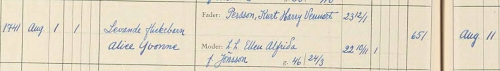 Fader: Persson, Kurt Harry Vennert 23 12/1
1741 Aug. 1 1 Levande flickebarn 651 Aug 11
Alice Yvonne Moder: Ellen Alfrida 22 19/11 1
f. Jönsson v. 46 24/3